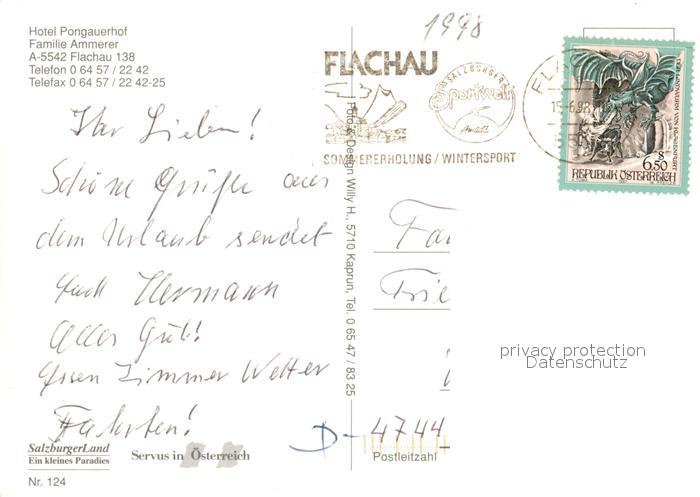 Hotel Pongauerhof
Familie Ammerer
A-5542 Flachau 138
Telefon 0 64 57 / 22 42
Telefax 0 64 57 / 22 42-25
1998
FLACHAU
SALZBURGER
Sportwelt
Amadé
SOMMERERHOLUNG / WINTERSPORT
FLA
15.-6.98
DER LINDWURM VON KLAGENFURT
S
6.50
REPUBLIK ÖSTERREICH
Ihr Lieben!
Schöne Grüße aus
dem Urlaub sendet
Euch Hermann
Alles Gut!
Essen Zimmer Wetter
Fahrten!
Foto & Design Willy H., 5710 Kaprun, Tel. 0 65 47 / 83 25
Fa
Frie
D-4744
Postleitzahl
privacy protection
Datenschutz
SalzburgerLand
Ein kleines Paradies
Servus in Österreich
Nr. 124